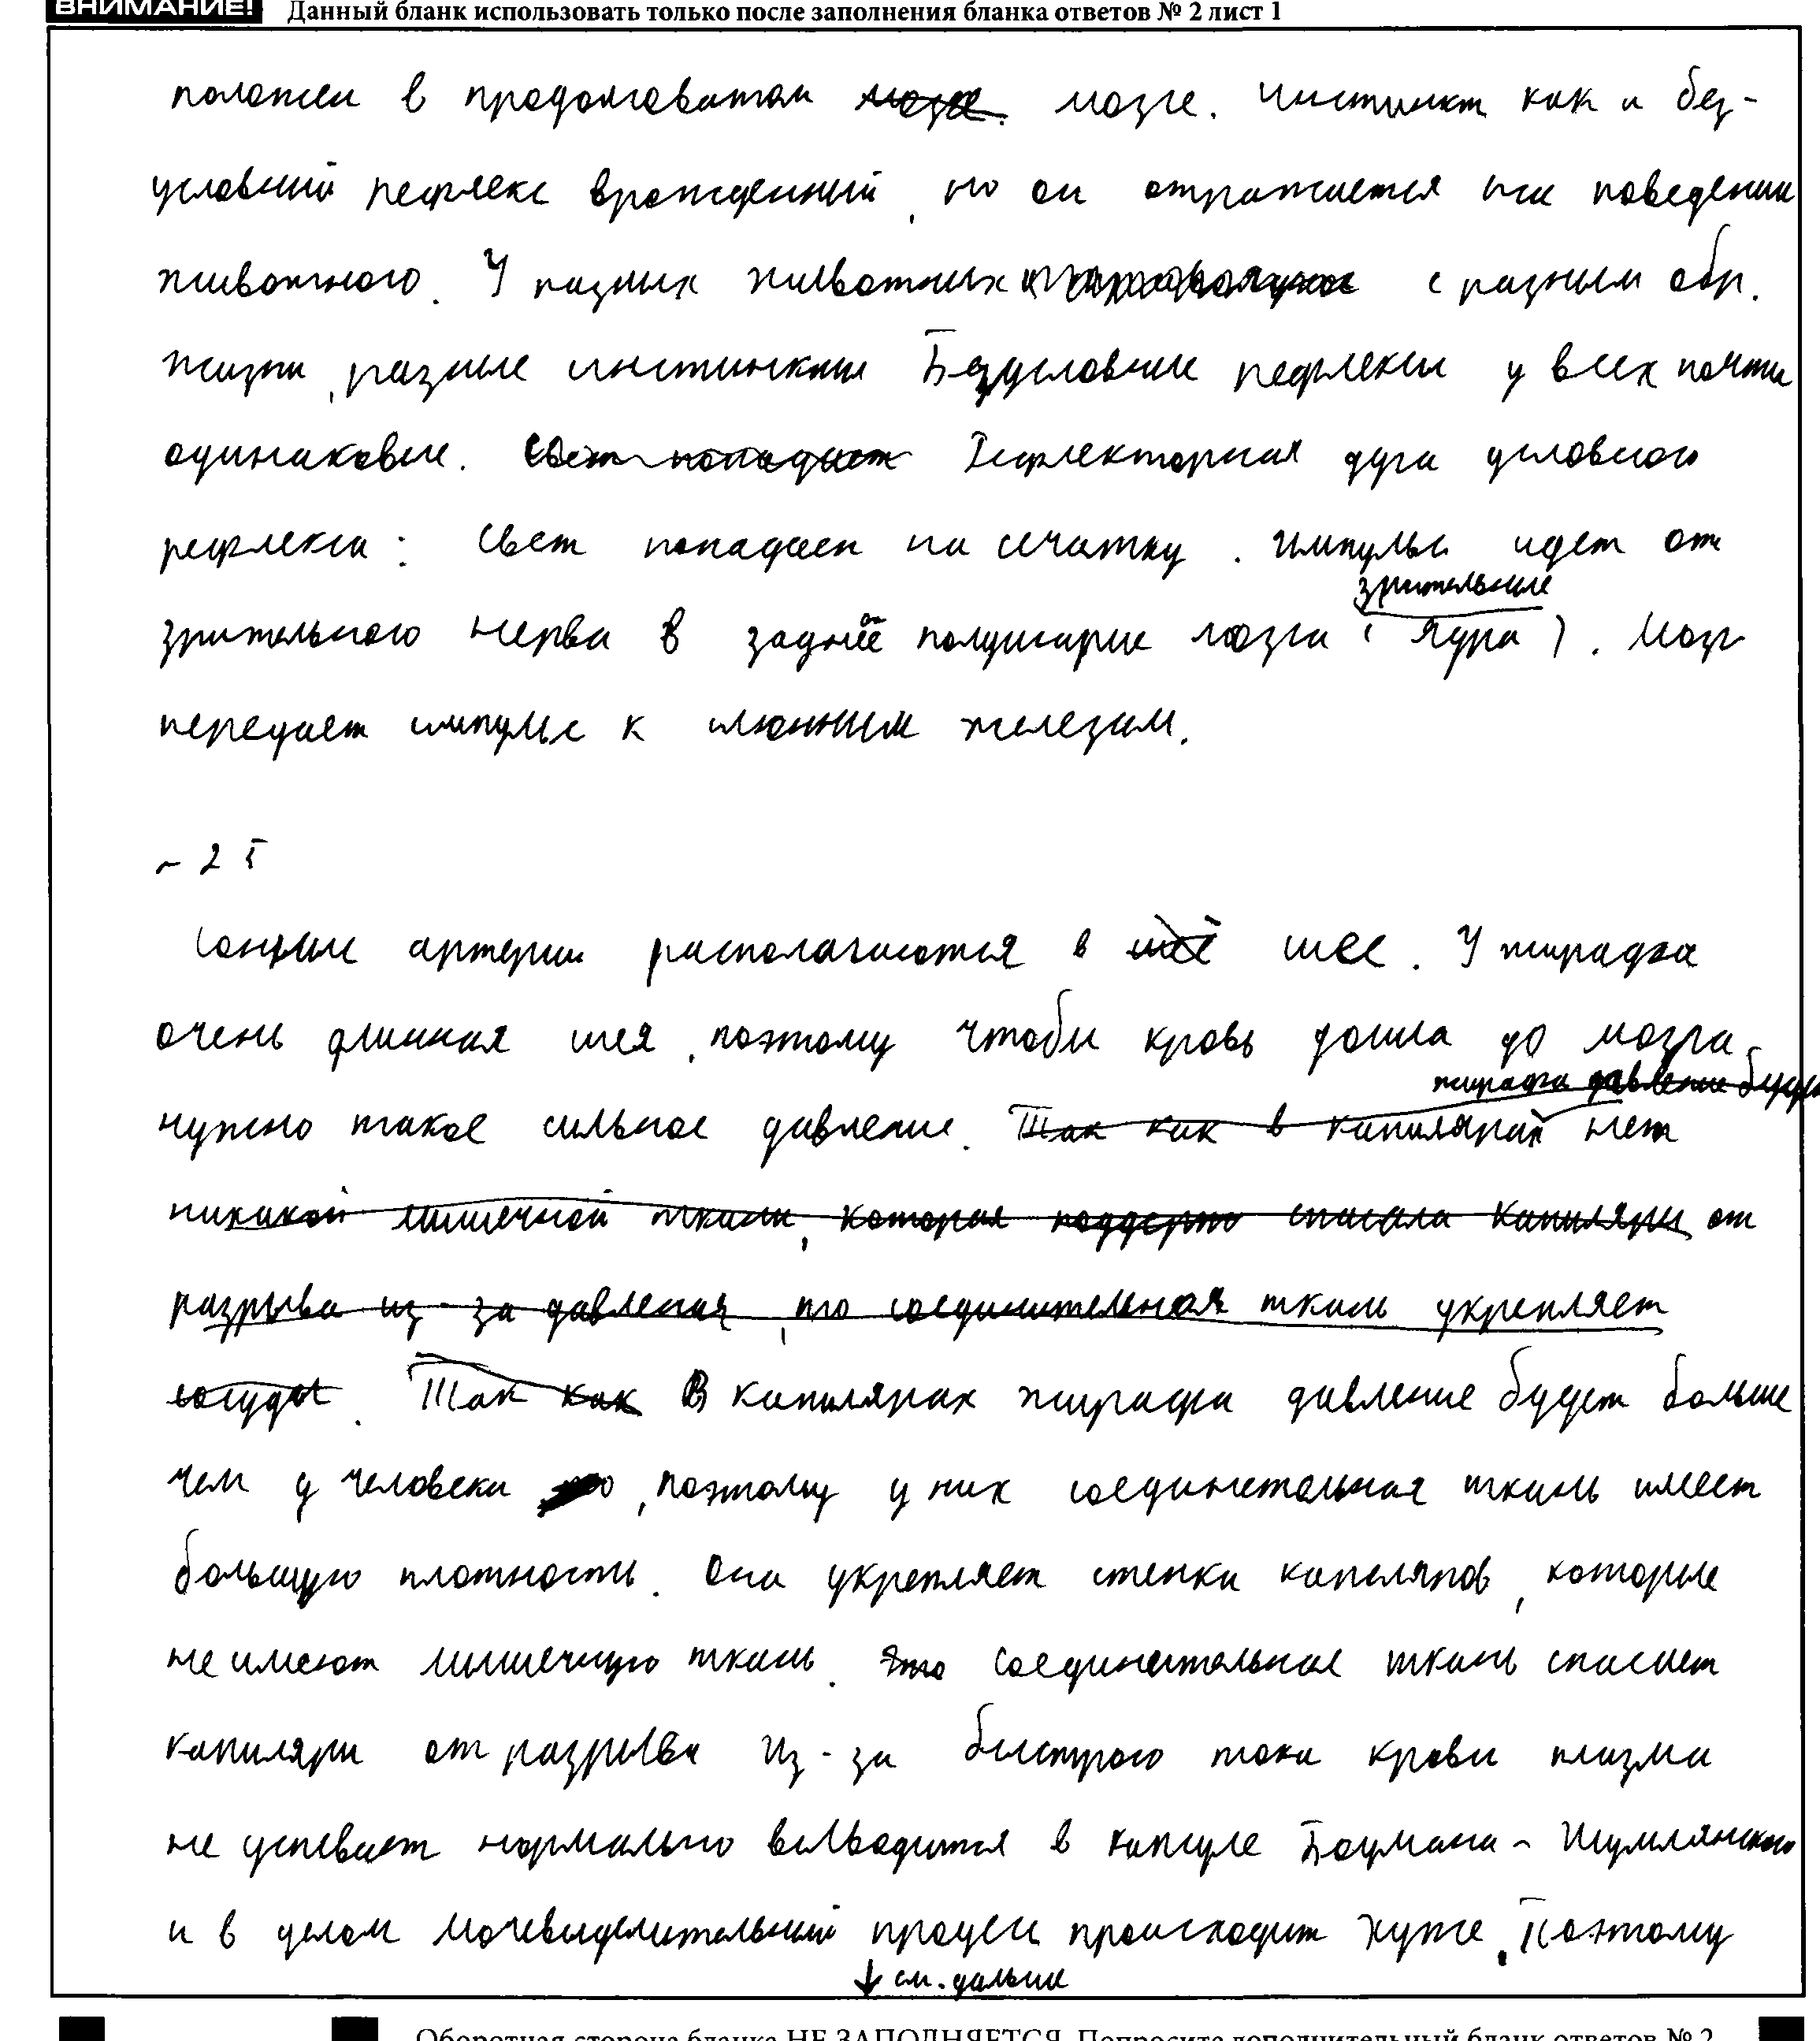 ВНИМАНИЕ! Данный бланк использовать только после заполнения бланка ответов № 2 лист 1
положен в продолговатом мозге. мозге. Инстинкт как и без-
условный рефлекс врожденный, но он отражается на поведении
животного. У разных животных с разным обр.
жизни, разные инстинкты Безусловные рефлексы у всех почти
одинаковые. Свет попадает Рефлекторная дуга условного
рефлекса: Свет попадаен на сечатку. Импульс идет от
зрительные
зрительного нерва в заднее полушарие мозга (ядра). Мозг
передает импульс к слюнным железам.
~ 25
Сонные артерии располагаются в шее шее. У жирафа
очень длинная шея, поэтому чтобы кровь дошла до мозга
жирафа давление будет
нужно такое сильное давление. Так как в капилярах нет
никакой мышечной ткани, которая поддерж спасала капиляры от
разрыва из-за давления, то соединительная ткань укрепляет
сосуды. Так как В капилярах жирафа давление будет больше
чем у человека то, поэтому у них соединетельная ткань имеет
большую плотность. Она укрепляет стенки капиляров, которые
не имеют мышечную ткань. Это соединительное ткань спасает
капиляры от разрыва Из-за быстрого тока крови плазма
не успевает нормально выводится в капсуле Боумана - Шумлянского
и в целом мочевыделительный процесс происходит хуже. Поэтому
↓ см. дальше
Оборотная сторона бланка НЕ ЗАПОЛНЯЕТСЯ. Попросите дополнительный бланк ответов № 2